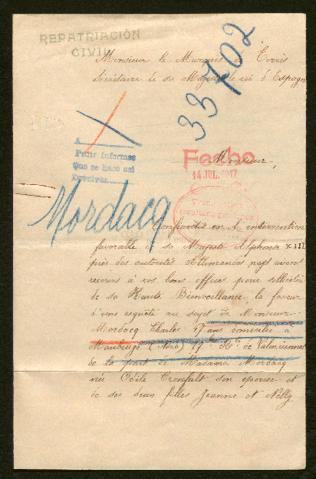 REPATRIACIÓN
CIVIL
Monsieur le Marquis de
Secrétaire de Sa Majesté le roi d'Espagne
33702
A
Pedir informes
que se hace así
Fecha
14 JUL. 1917
Monsieur,
Mordacq
Confiante en l'intervention
favorable de Sa Majesté Alphonse XIII
près des autorités Allemandes nous avons
recours à vos bons offices pour solliciter
de sa Haute Bienveillance, la faveur
d'une enquête au sujet de Monsieur
Mordacq Charles 57 ans
Maubeuge (Nord) Rte de Valenciennes
de la part de Madame Mordacq
née Odile son épouse et
de ses deux filles Jeanne et Nelly